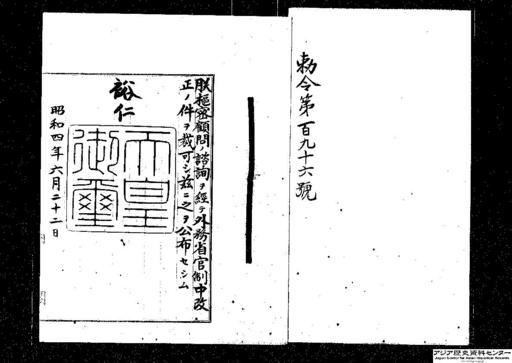 勅令第百九十六號
朕樞密顧問ノ諮詢ヲ經テ外務省官制中改
正ノ件ヲ裁可シ茲ニ之ヲ公布セシム
裕仁
天皇
御璽
昭和四年六月二十二日
アジア歴史資料センター
Japan Center for Asian Historical Records